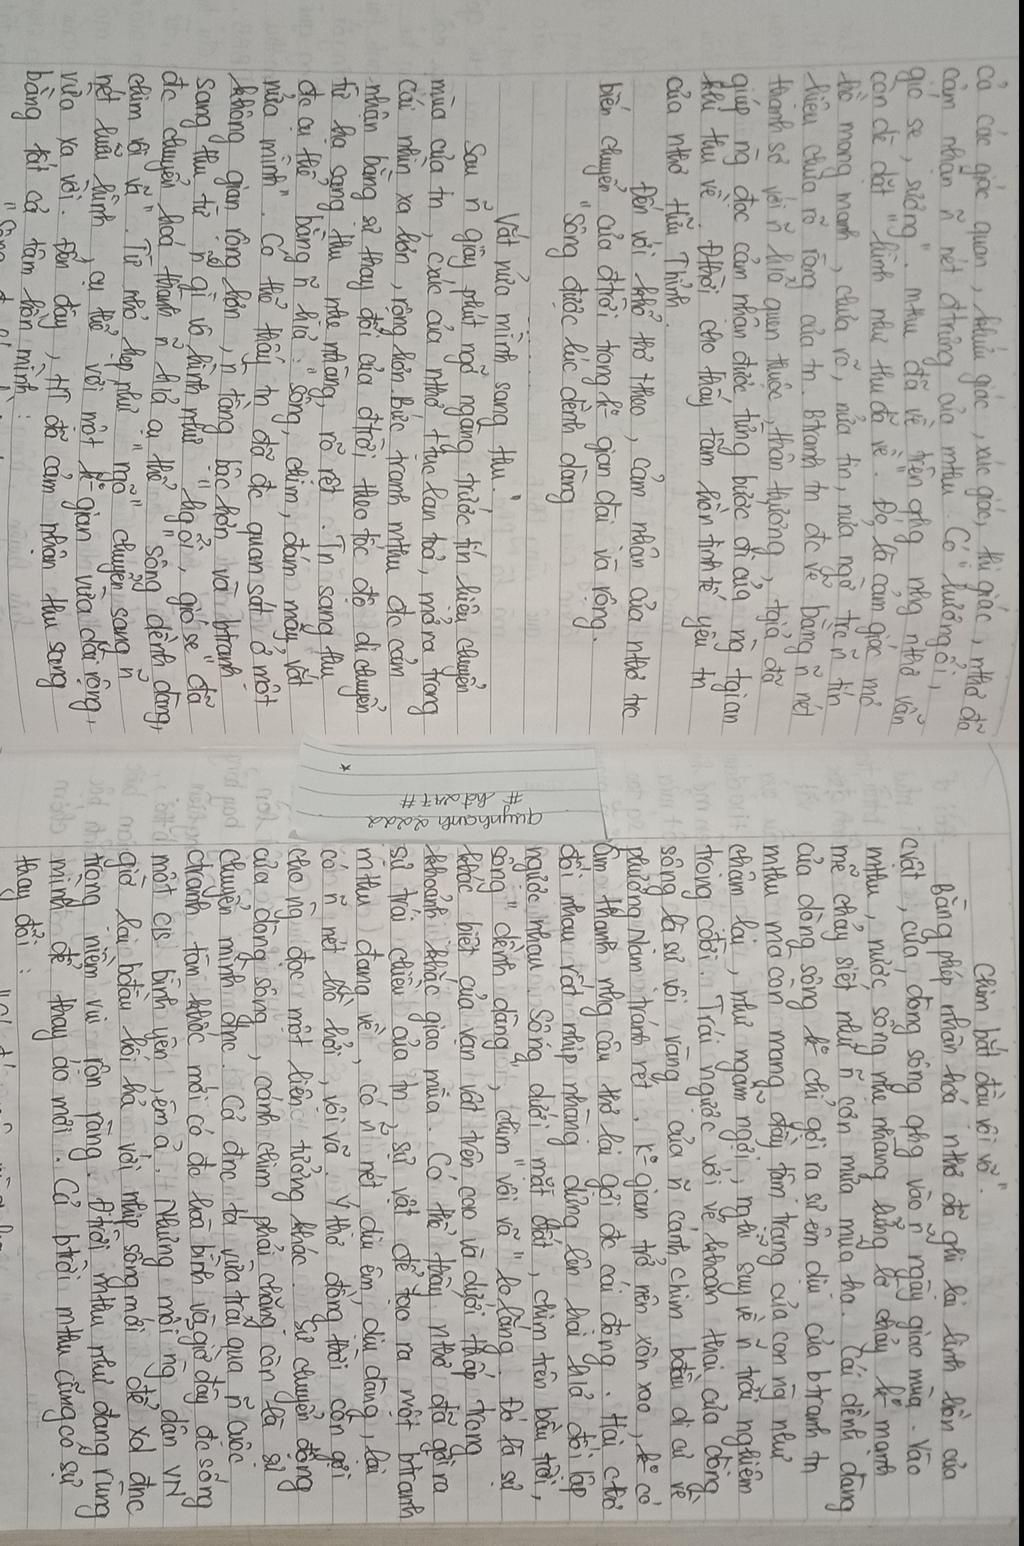 cả các giác quan, khứu giác, xúc giác, thị giác, nthơ đã
cảm nhận ñ nét đtrưng của mthu. Có "hương ổi,
gió se, sương". mthu đã về trên qhg nhg nthơ vẫn
còn dè dặt "hình như thu đã về". Đó là cảm giác mơ
hồ mong manh, chưa rõ, nửa tin, nửa ngờ trc ñ tín
hiệu chưa rõ ràng của tn. Btranh tn đc vẽ bằng ñ nét
thanh sơ với ñ h/ả quen thuộc, thân thương, tgiả đã
giúp ng đọc cảm nhận được từng bước đi của ng tgian
khi thu về. Đthời cho thấy tâm hồn tinh tế yêu tn
của nthơ Hữu Thỉnh.
Đến với khổ thơ theo, cảm nhận của nthơ trc
biến chuyển của đtrời trong k° gian dài và rộng.
"Sông được lúc dềnh dàng
Vắt nửa mình sang thu".
Sau ñ giây phút ngỡ ngàng trước tín hiệu chuyển
mùa của tn, cxúc của nthơ tiếp tục lan toả, mở ra trong
cái nhìn xa hơn, rộng hơn. Bức tranh mthu đc cảm
nhận bằng sự thay đổi của đtrời theo tốc độ di chuyển
từ hạ sang thu nhẹ nhàng, rõ rệt. Tn sang thu
đc cụ thể bằng ñ h/ả: "sông, chim, đám mây, vắt
nửa mình". Có thể thấy tn đã đc quan sát ở một
không gian rộng hơn, ñ tầng bậc hơn và btranh
sang thu từ ñ gì vô hình như "hg ổi, gió se" đã
đc chuyển hoá thành ñ h/ả cụ thể "sông dềnh dàng,
chim vội vã". Từ nhỏ hẹp như "ngõ" chuyển sang ñ
nét hữu hình, cụ thể với một k° gian vừa dài rộng,
vừa xa vời. Đến đây, HT đã cảm nhận thu sang
bằng tất cả tâm hồn mình:
"Sông
Chim bắt đầu vội vã".
Bằng phép nhân hoá nthơ đã ghi lại linh hồn của
cvật, của dòng sông qhg vào ñ ngày giao mùa. Vào
mthu, nước sông nhẹ nhàng lững lờ chảy k° mạnh
mẽ chảy siết như ñ cơn mưa mùa hạ. Cái dềnh dàng
của dòng sông k° chỉ gợi ra sự êm dịu của btranh tn
mthu mà còn mang đầy tâm trạng của con ng như
chậm lại, như ngẫm ngợi, nghĩ suy về ñ trải nghiệm
trong cđời. Trái ngược với vẻ khoan thai của dòng
sông là sự vội vàng của ñ cánh chim bđầu di cư về
phương Nam tránh rét. K° gian trở nên xôn xao, k° có
âm thanh nhg câu thơ lại gợi đc cái động. Hai cthơ
đối nhau rất nhịp nhàng dựng lên hai h/ả đối lập
ngược nhau. Sông dưới mặt đất, chim trên bầu trời,
sông "dềnh dàng", chim "vội vã" lo lắng. Đó là sự
khác biệt của vạn vật trên cao và dưới thấp trong
khoảnh khắc giao mùa. Có thể thấy, nthơ đã gợi ra
sự trái chiều của tn, sự vật để tạo ra một btranh
mthu đang về, có ñ nét dịu êm, dịu dàng, lại
có ñ nét hối hả, vội vã. Ý thơ đồng thời còn gợi
cho ng đọc một liên tưởng khác. Sự chuyển động
của dòng sông, cánh chim phải chăng còn là sự
chuyển mình đnc. Cả đnc ta vừa trải qua ñ cuộc
ctranh tàn khốc mới có đc hoà bình và giờ đây đc sống
một c/s bình yên, êm ả. Nhưng mỗi ng dân VN
giờ lại bđầu hối hả với nhịp sống mới để xd đnc
trong niềm vui rộn ràng. Đtrời mthu như đang rùng
mình để thay áo mới. Cả btrời mthu cũng có sự
thay đổi:
quynhanh2222
# hd247 #